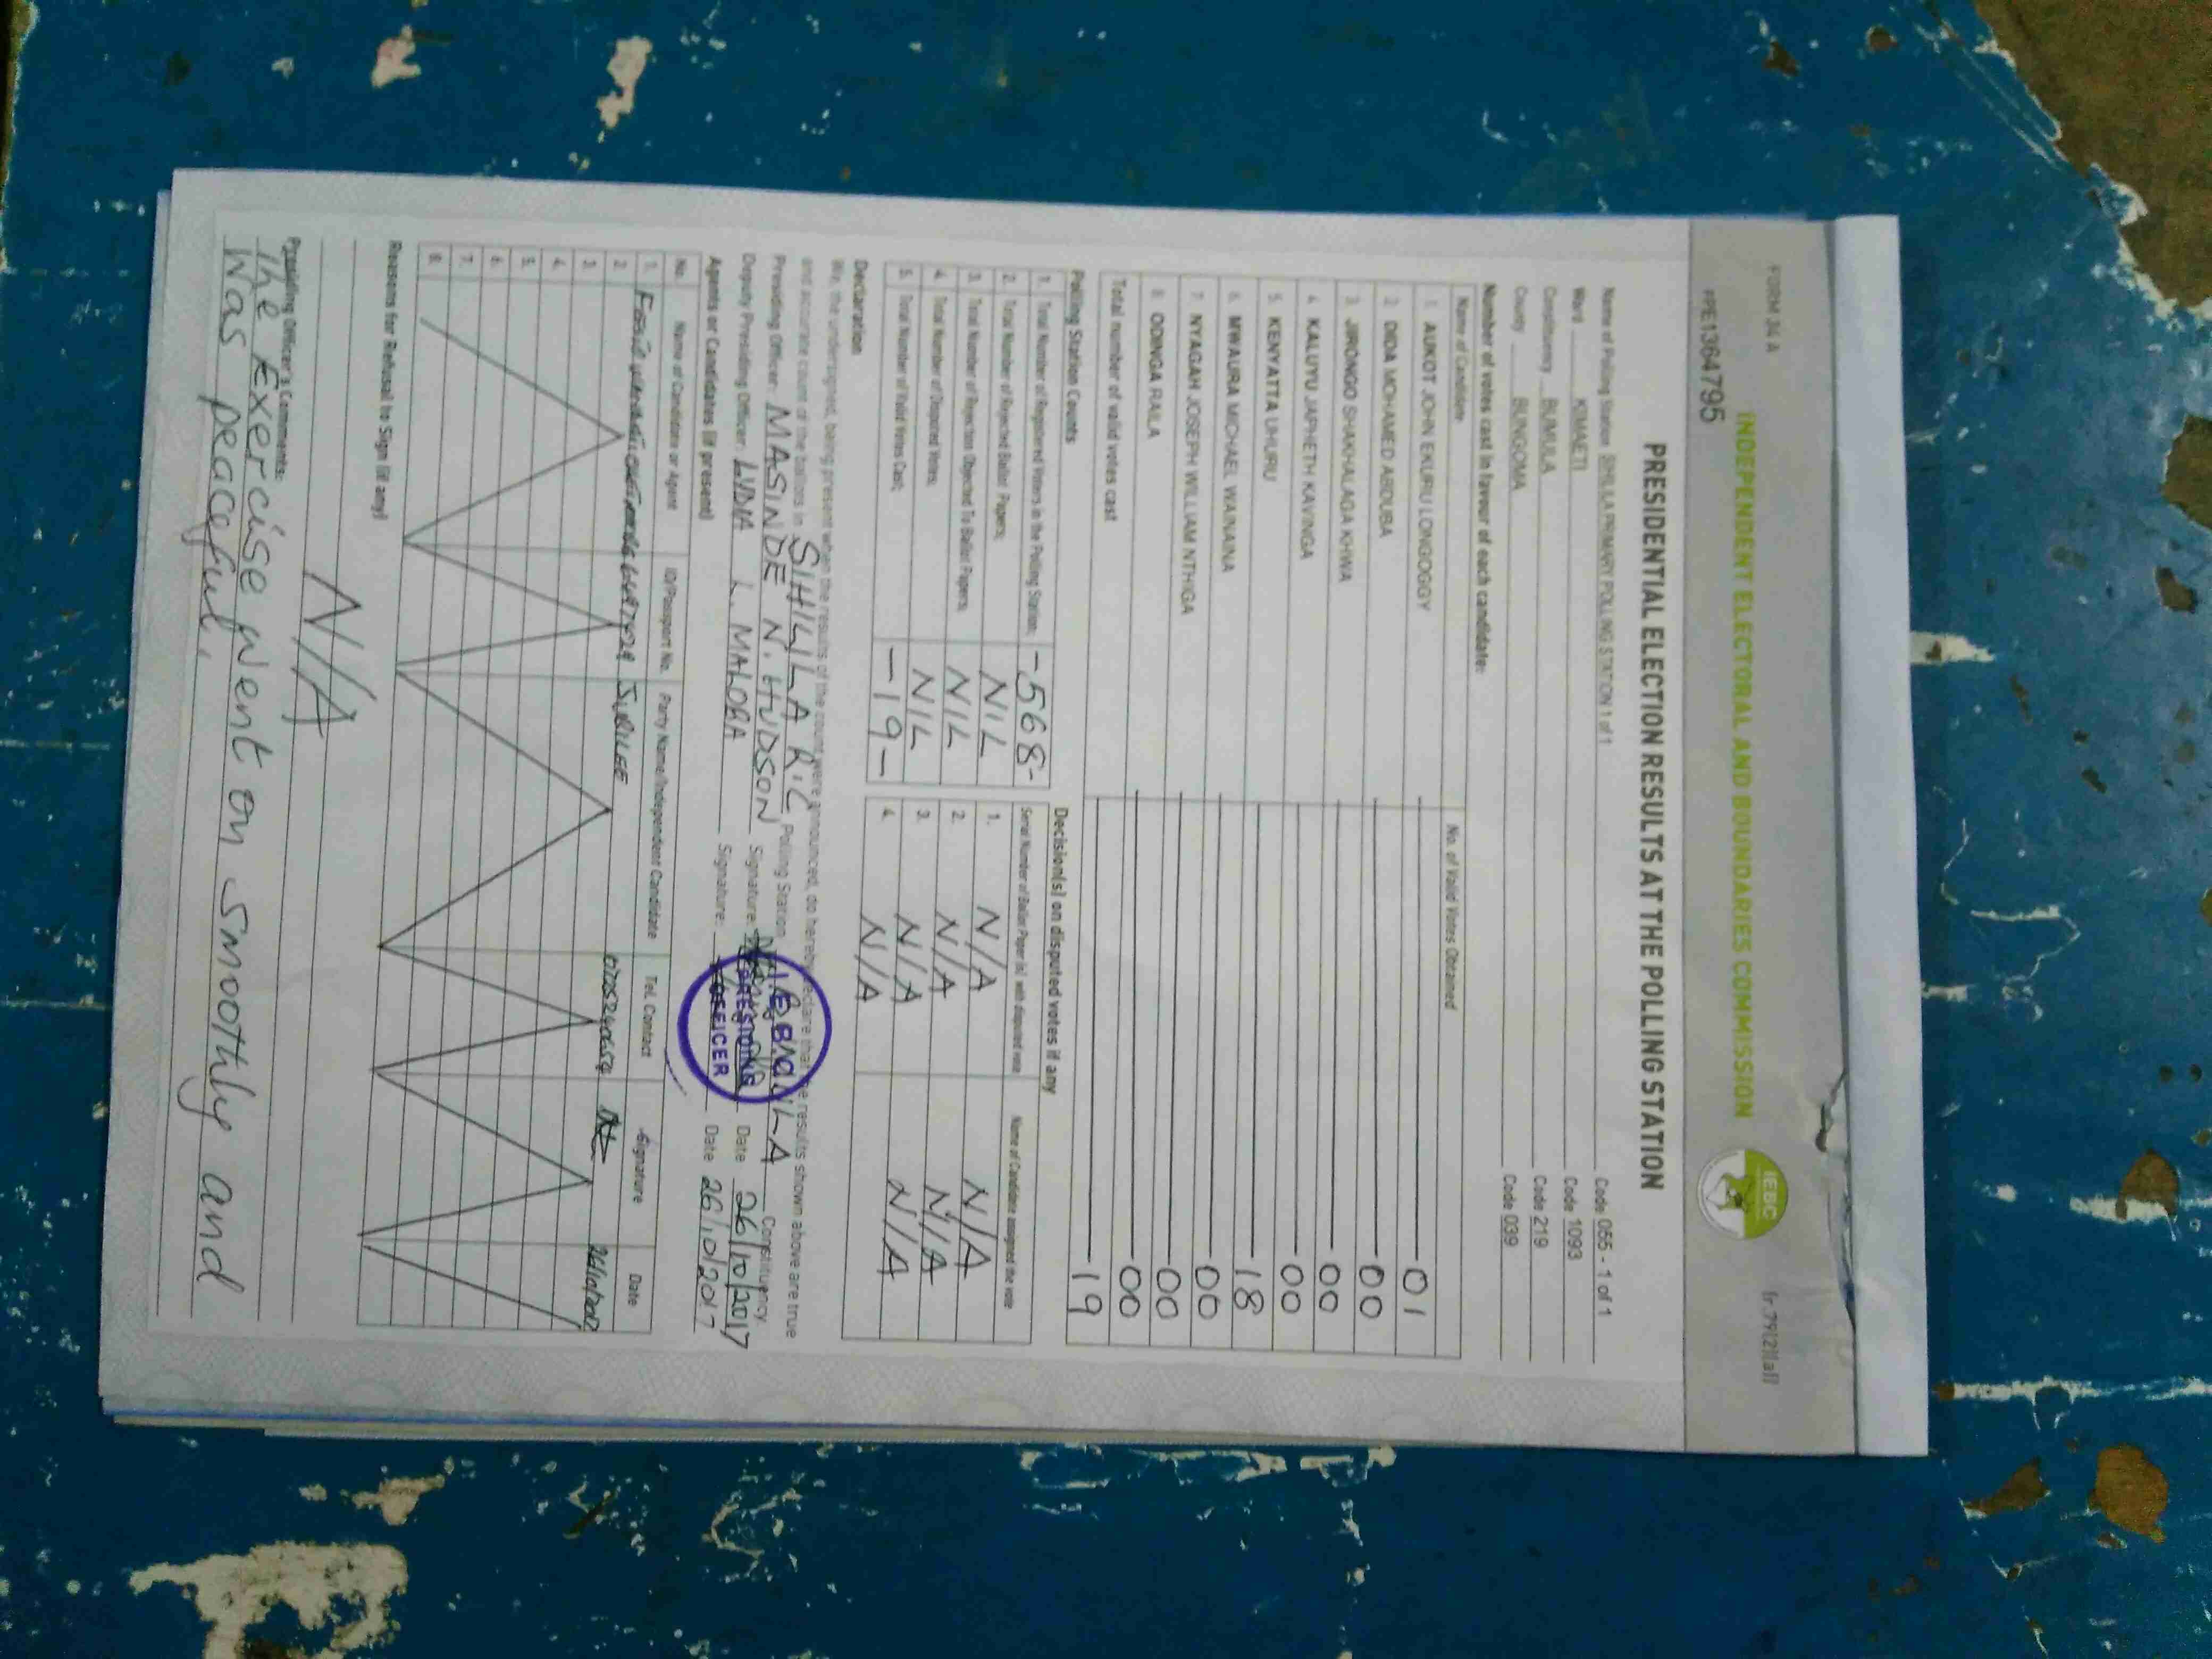 FORM 34 A
INDEPENDENT ELECTORAL AND BOUNDARIES COMMISSION
IEBC
PPE1364795
PRESIDENTIAL ELECTION RESULTS AT THE POLLING STATION
Name of Polling Station SIHILILA PRIMARY POLLING STATION 1 of 1 Code 055 - 1 of 1
Ward KIMAETI Code 1093
Constituency BUMULA Code 219
County BUNGOMA Code 039
Number of votes cast in favour of each candidate:
Name of Candidate No. of Valid Votes Obtained
1. AUKOT JOHN EKURU LONGOGGY 01
2. DIDA MOHAMED ABDUBA 00
3. JIRONGO SHAKHALAGA KHWA 00
4. KALUYU JAPHETH KAVINGA 00
5. KENYATTA UHURU 18
6. MWAURA MICHAEL WAINAINA 00
7. NYAGAH JOSEPH WILLIAM NTHIGA 00
8. ODINGA RAILA 00
Total number of valid votes cast 19
Polling Station Counts
1. Total Number of Registered Voters in the Polling Station; -568-
2. Total Number of Rejected Ballot Papers; NIL
3. Total Number of Rejection Objected To Ballot Papers; NIL
4. Total Number of Disputed Votes; NIL
5. Total Number of Valid Votes Cast; -19-
Decision(s) on disputed votes if any
Serial Number of Ballot Paper (s) with disputed vote Name of Candidate assigned the vote
1. N/A N/A
2. N/A N/A
3. N/A N/A
4. N/A
Declaration
We, the undersigned, being present when the results of the count were announced, do hereby declare that the results shown above are true
and accurate count of the ballots in SIHILILA P. Polling Station Constituency
Presiding Officer: MASINDE N. HUDSON Signature: Date 26/10/2017
Deputy Presiding Officer: LYDIA L. MALOBA Signature: Date 26/10/2017
PRESIDING
OFFICER
Agents or Candidates (if present)
No. Name of Candidate or Agent ID/Passport No. Party Name/Independent Candidate Tel. Contact Signature Date
1. JUBILEE 26/10/2017
2.
3.
4.
5.
6.
7.
8.
Reasons for Refusal to Sign (if any)
N/A
Presiding Officer's Comments:
The Exercise went on smoothly and
was peaceful.